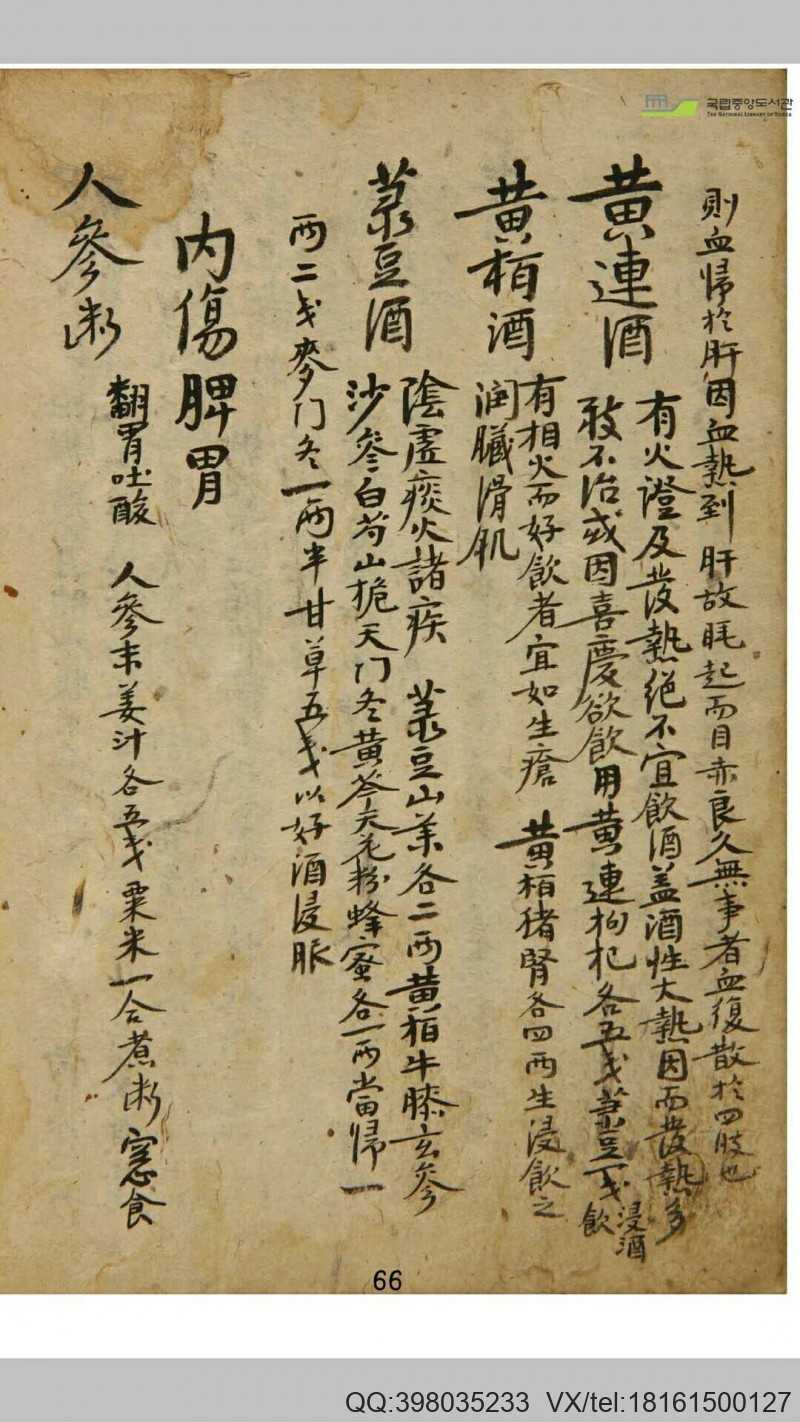 국립중앙도서관
THE NATIONAL LIBRARY OF KOREA
則血帰於肝因血熱到肝故眊起而目赤良久無事者血復散於四肢也
黄連酒
有火證及發熱絕不宜飮酒盖酒性大熱因而發熱多
敢不治或因喜慶欲飮用黄連拘杞各五戔菉豆一戔浸酒飮
黄栢酒
有相火而好飮者宜如生瘡 黄栢猪腎各四両生浸飮之
潤臓滑肌
菉豆酒
陰虚痰火諸疾 菉豆山薬各二両黄栢牛膝玄參
沙參白芍山梔天门冬黄芩天花粉蜂蜜各一両當帰一
両二戔麥门冬一両半甘草五戔以好酒浸服
内傷脾胃
人參粥
翻胃吐酸 人參末姜汁各五戔粟米一合煮粥食
66
QQ:398035233 VX/tel:18161500127